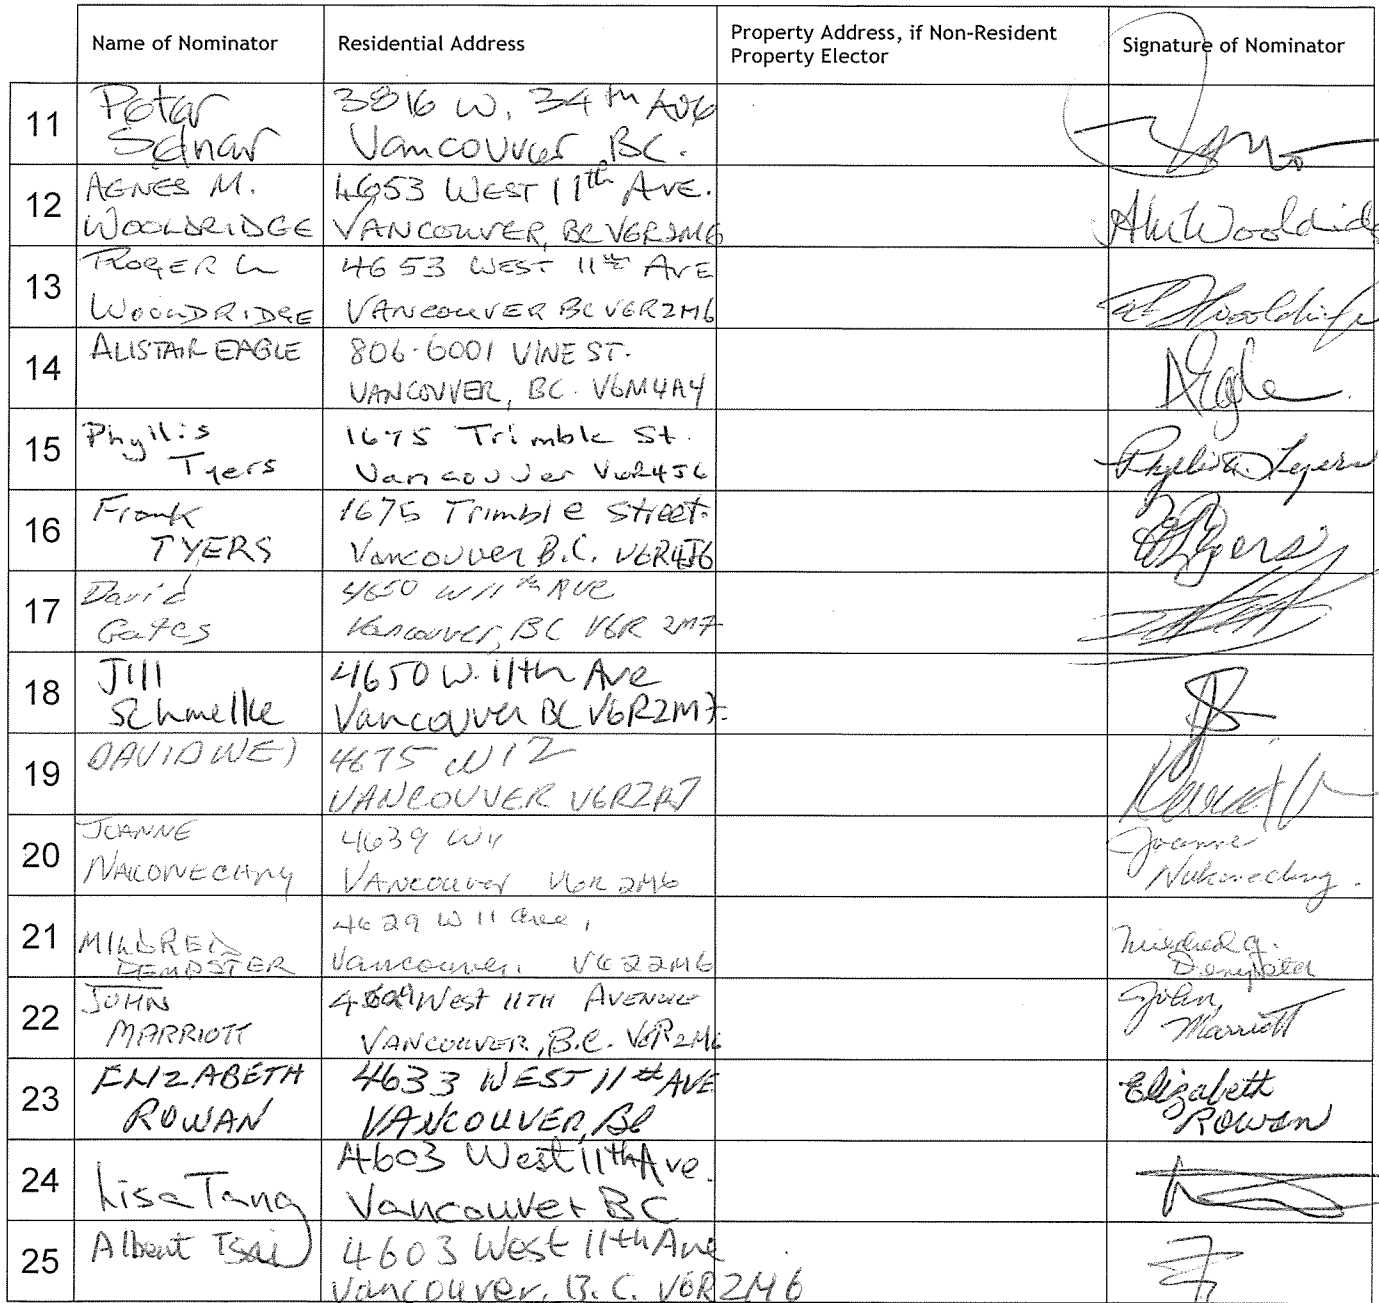 Name of Nominator
Residential Address
Property Address, if Non-Resident
Property Elector
Signature of Nominator
11
Peter
3816 W. 34th Ave
Vancouver, BC.
12
AGNES M.
WOOLDRIDGE
4653 WEST 11th AVE.
VANCOUVER, BC V6R2M6
AMWooldridge
13
ROGER L
WOOLDRIDGE
4653 WEST 11th AVE
VANCOUVER BC V6R2M6
Wooldridge
14
ALISTAIR EAGLE
806-6001 VINE ST.
VANCOUVER, BC. V6M4A4
AEagle
15
Phyllis
Tyers
1675 Trimble St.
Vancouver V6R4J6
Phyllis A. Tyers
16
Frank
TYERS
1675 Trimble Street.
Vancouver B.C. V6R4J6
Tyers
17
David
Gates
4650 W 11th AVE
Vancouver, BC V6R 2M7
18
Jill
Schmelke
4650 W. 11th Ave
Vancouver BC V6R2M7
19
DAVID WEI
4675 W12
VANCOUVER V6R2R7
David
20
JOANNE
NAKONECHNY
4639 W11
VANCOUVER V6R 2M6
Joanne
Nakonechny.
21
MILDRED
DEMPSTER
4629 W 11 Ave,
Vancouver. V6R2M6
Mildred A.
Dempster
22
JOHN
MARRIOTT
West 11TH AVENUE
VANCOUVER, B.C. V6R2M6
John
Marriott
23
ELIZABETH
ROWAN
4633 WEST 11th AVE
VANCOUVER, BC
Elizabeth
ROWAN
24
Lisa Tang
4603 West 11th Ave.
Vancouver BC
25
Albert Tsai
4603 West 11th Ave
Vancouver, B.C. V6R2M6